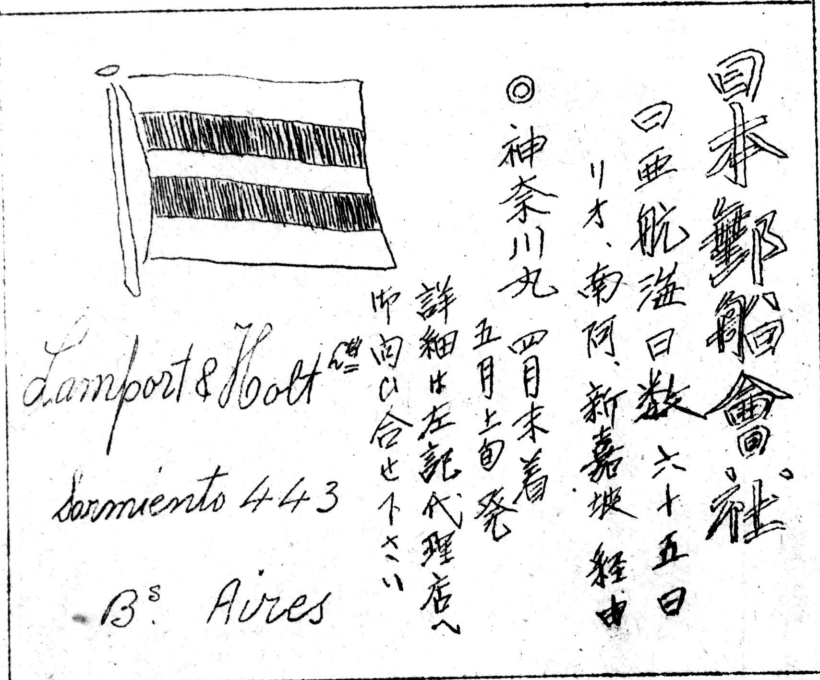 日本郵船會社
日亜航海日数 六十五日
リオ、南阿、新嘉坡 経由
◎ 神奈川丸 四月末着
五月上旬発
詳細は左記代理店へ
御向い合せ下さい
Lamport & Holt Ltd
Sarmiento 443
Bs. Aires